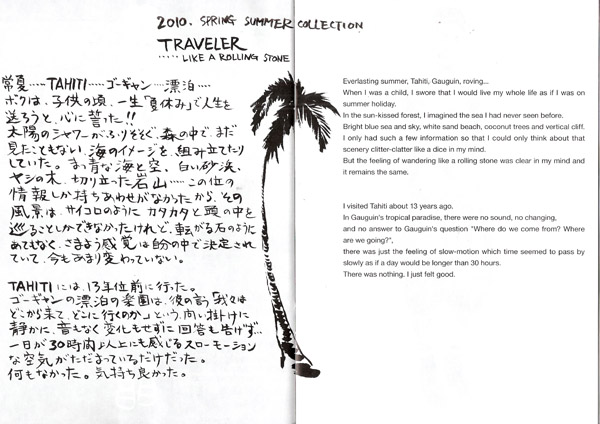 2010. SPRING SUMMER COLLECTION
TRAVELER
‥‥‥LIKE A ROLLING STONE
常夏‥‥‥TAHITI‥‥‥ゴーギャン‥‥漂泊‥‥
ボクは、子供の頃、一生「夏休み」で人生を
送ろうと、心に誓った!!
太陽のシャワーがふりそそぐ、森の中で、まだ
見たこともない、海のイメージを、組み立てたり
していた。まっ青な海と空、白い砂浜、
ヤシの木、切り立った岩山‥‥‥この位の
情報しか持ちあわせがなかったから、その
風景は、サイコロのように カタカタと頭の中を
巡ることしかできなかったけれど、転がる石のように
あてもなく、さまよう感覚は自分の中で決定され
ていて、今もあまり変わっていない。
TAHITIには、13年位前に行った。
ゴーギャンの漂泊の楽園は、彼の言う「我々は
どこから来て、どこに行くのか」という、問い掛けに
静かに、音もなく 変化もせずに 回答も告げず‥‥
一日が30時間以上にも感じるスローモーション
な空気がただよっているだけだった。
何もなかった。気持ち良かった。
Everlasting summer, Tahiti, Gauguin, roving...
When I was a child, I swore that I would live my whole life as if I was on
summer holiday.
In the sun-kissed forest, I imagined the sea I had never seen before.
Bright blue sea and sky, white sand beach, coconut trees and vertical cliff.
I only had such a few information so that I could only think about that
scenery clitter-clatter like a dice in my mind.
But the feeling of wandering like a rolling stone was clear in my mind and
it remains the same.
I visited Tahiti about 13 years ago.
In Gauguin's tropical paradise, there were no sound, no changing,
and no answer to Gauguin's question "Where do we come from? Where
are we going?",
there was just the feeling of slow-motion which time seemed to pass by
slowly as if a day would be longer than 30 hours.
There was nothing. I just felt good.